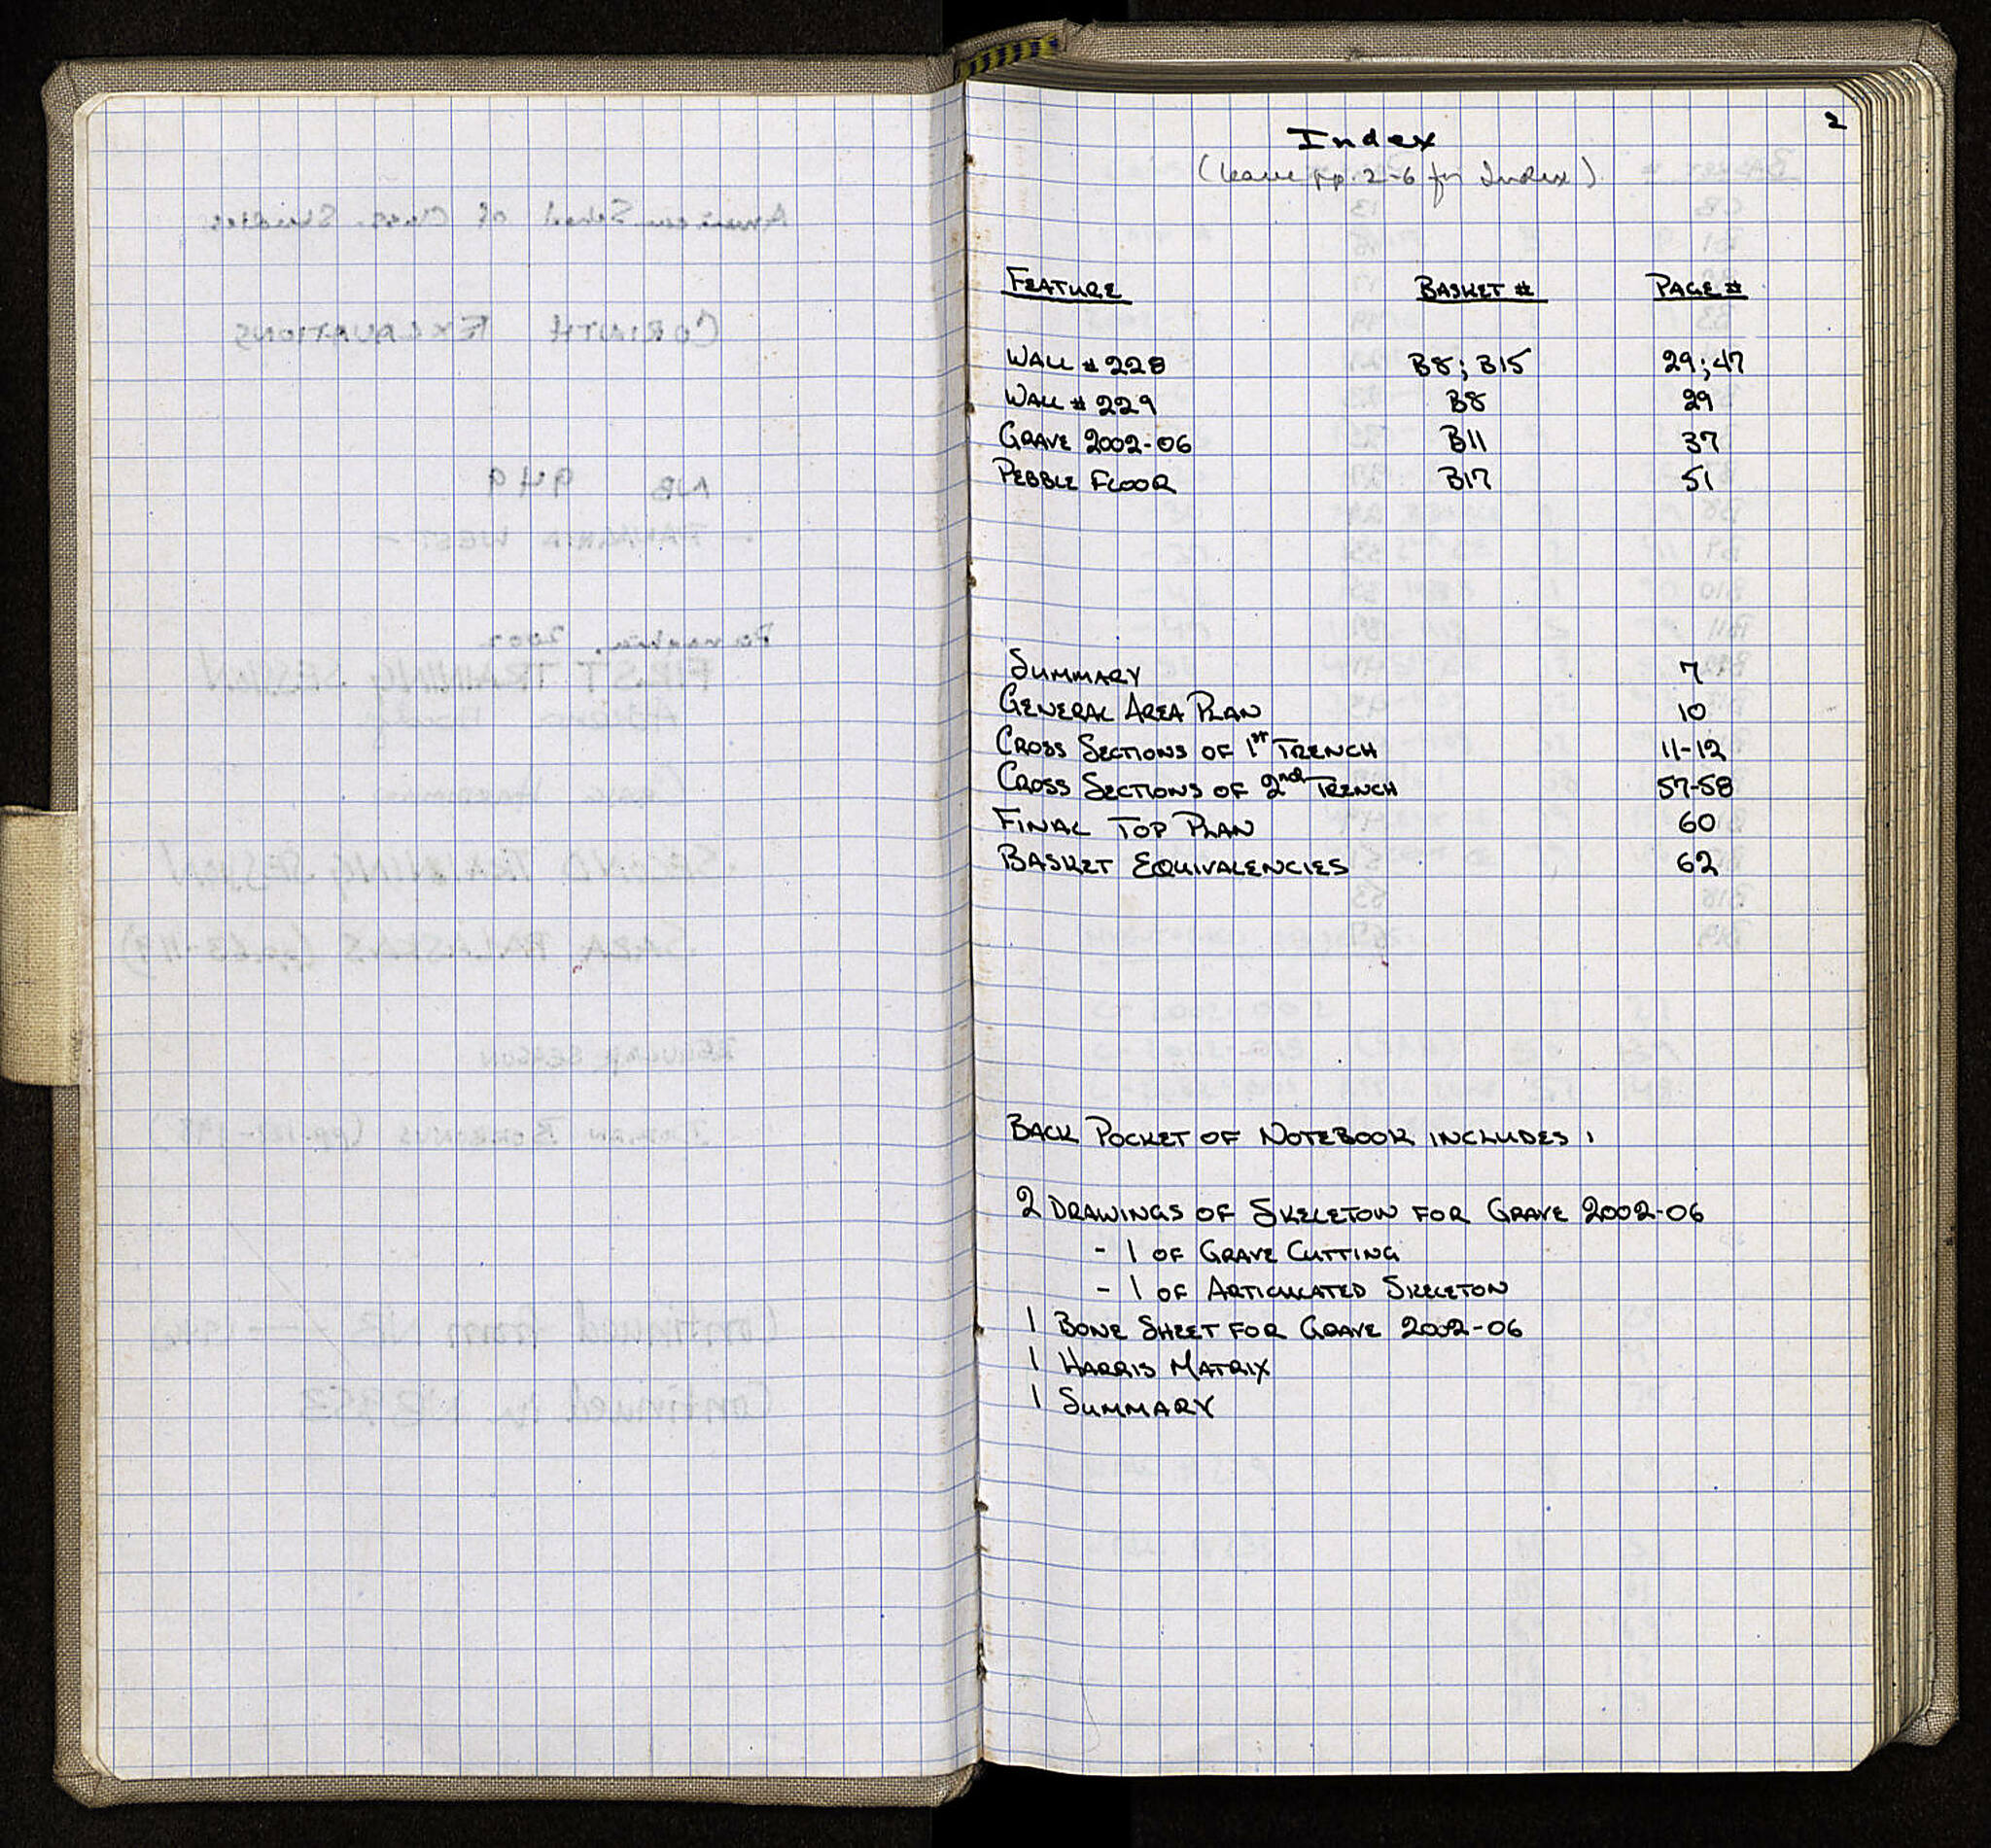 2
Index
(leave pp. 2-6 for Index)
FEATURE BASKET # PAGE #
WALL # 228 B8; B15 29; 47
WALL # 229 B8 29
GRAVE 2002-06 B11 37
PEBBLE FLOOR B17 51
SUMMARY 7
GENERAL AREA PLAN 10
CROSS SECTIONS OF 1st TRENCH 11-12
CROSS SECTIONS OF 2nd TRENCH 57-58
FINAL TOP PLAN 60
BASKET EQUIVALENCIES 62
BACK POCKET OF NOTEBOOK INCLUDES:
2 DRAWINGS OF SKELETON FOR GRAVE 2002-06
- 1 OF GRAVE CUTTING
- 1 OF ARTICULATED SKELETON
1 BONE SHEET FOR GRAVE 2002-06
1 HARRIS MATRIX
1 SUMMARY